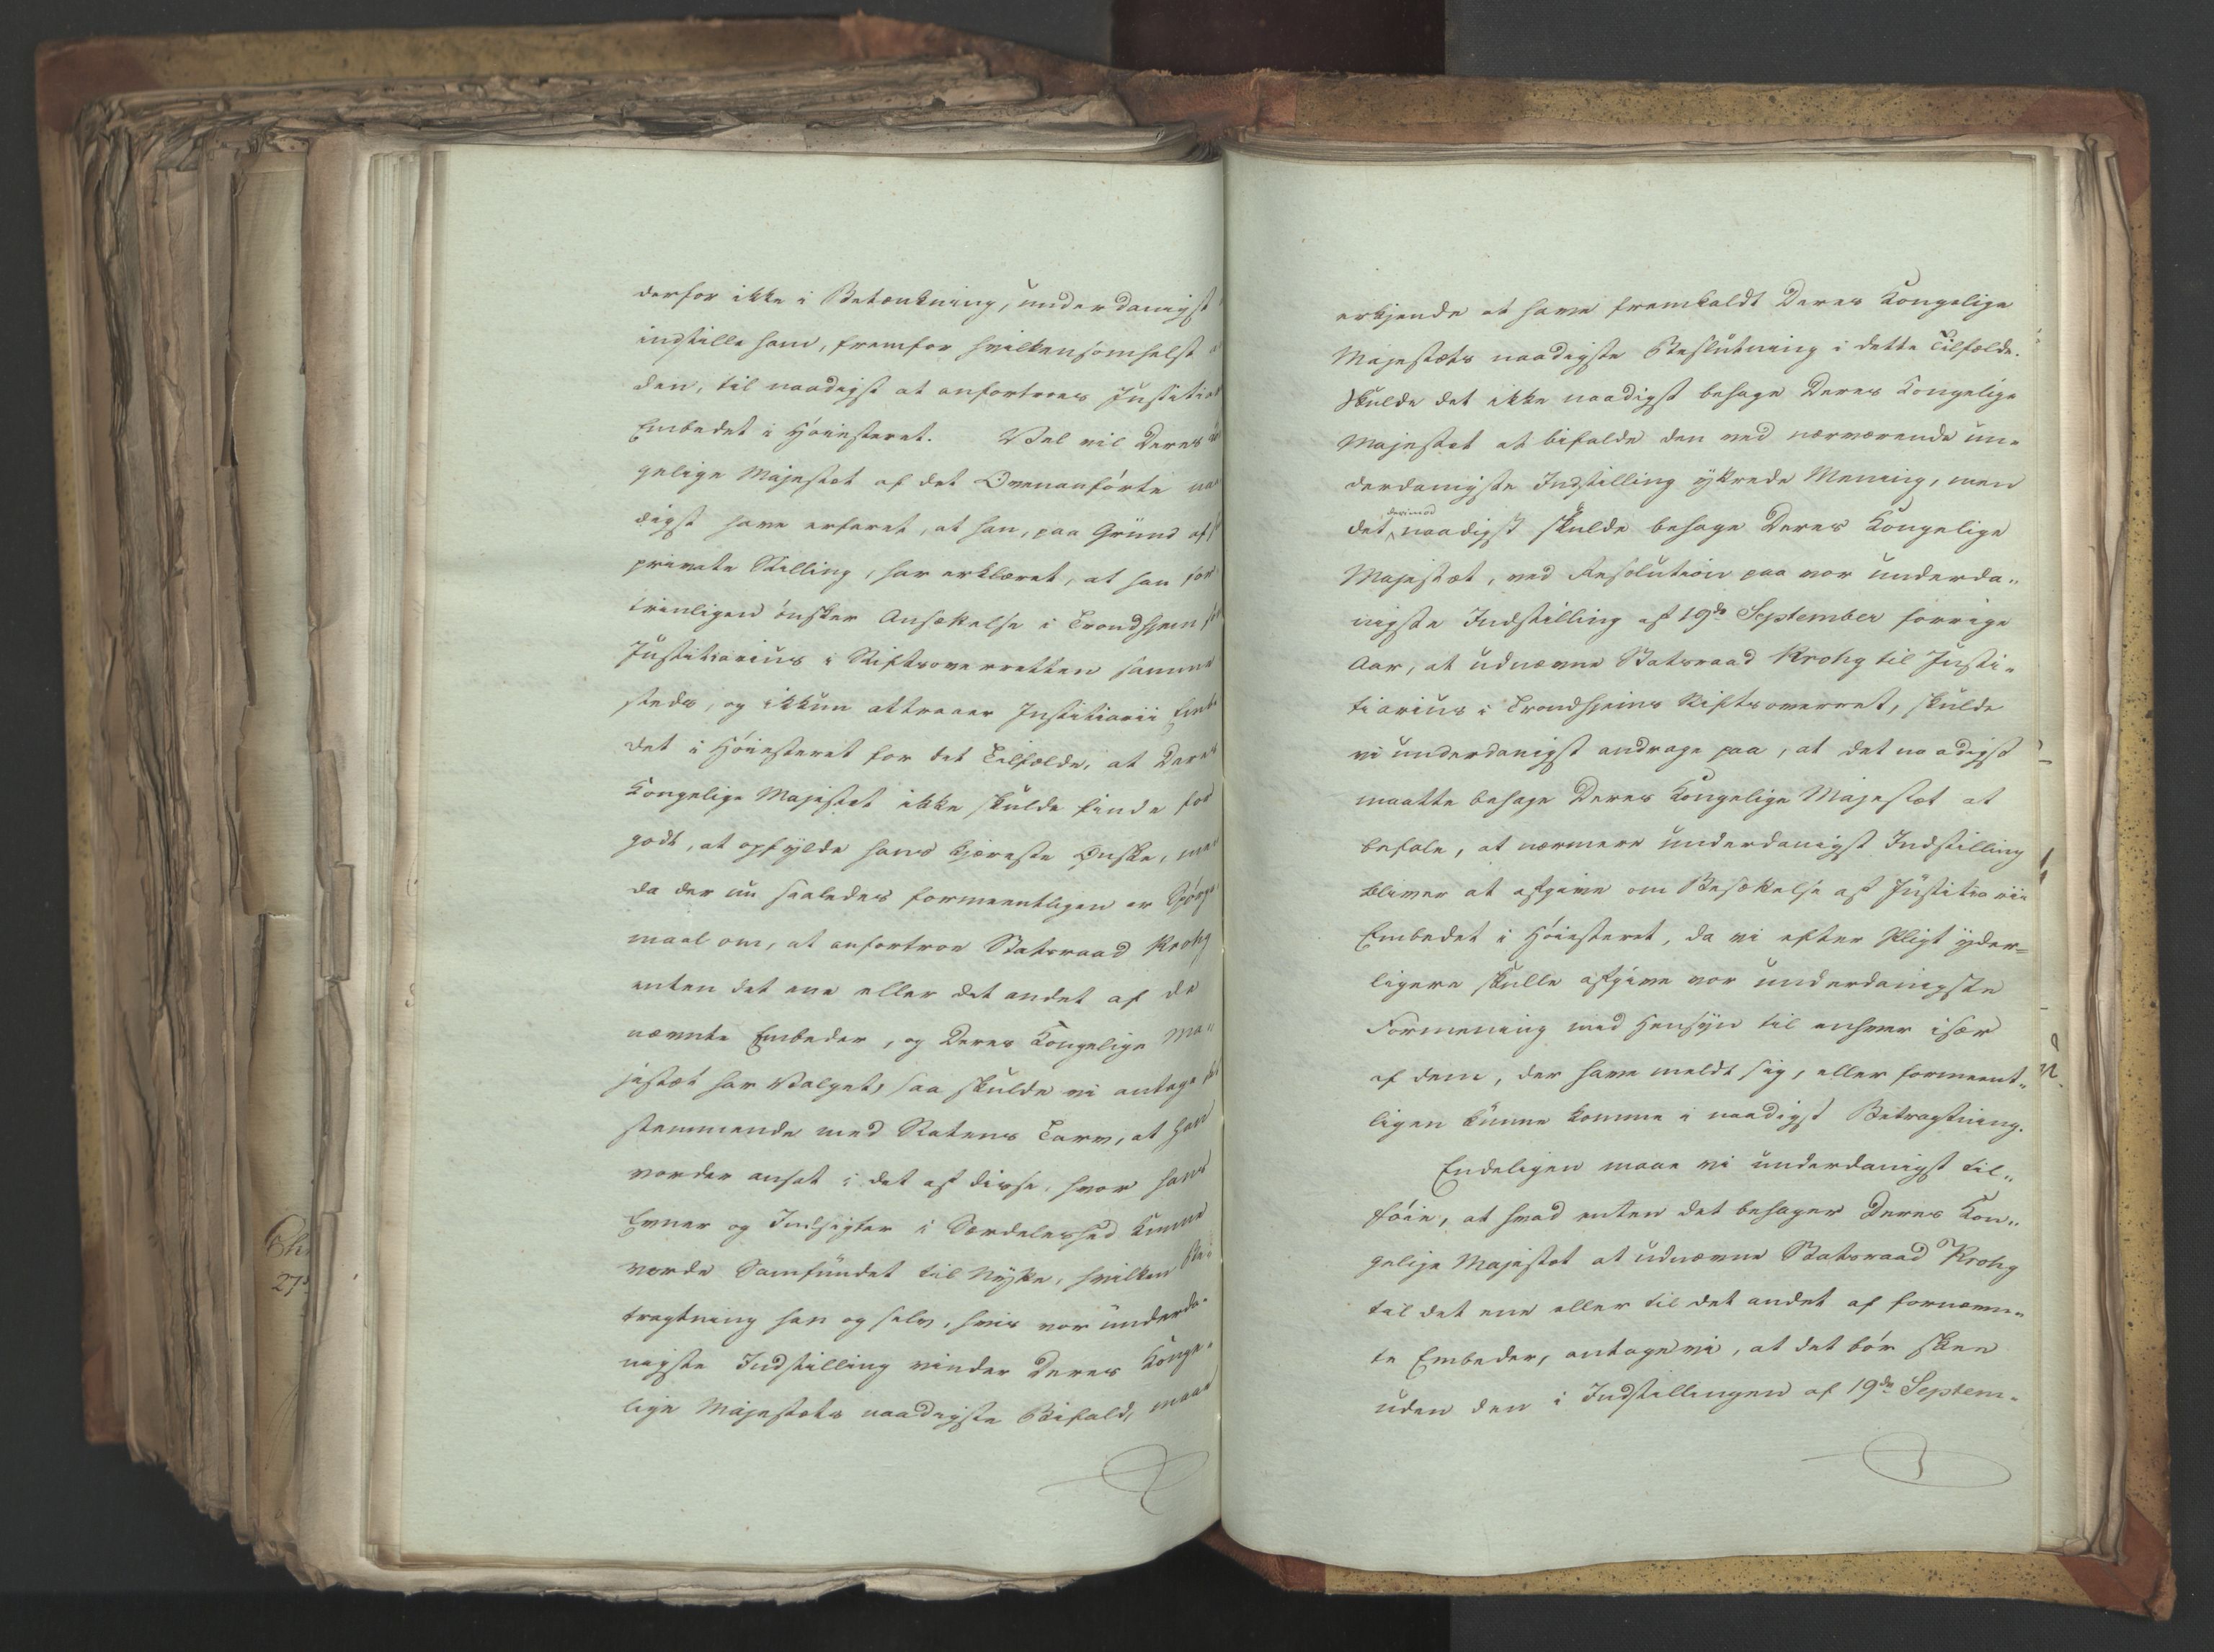 derfor ikke i Betænkning, underdanigst
indstille ham, fremfor hvilkensomhelst
den, til naadigst at anfortroes Justitiarii
Embedet i Høiesteret. Vel vil Deres
gelige Majestæt af det Ovenanførte naa
digst have erfaret, at han, paa Grund af
private Stilling, har erklæret, at han for
trinligen ønsker Ansættelse i Trondhjem
Justitiarius i Stiftsoverretten samme
steds, og ikkun attraaer Justitiarii Embe
det i Høiesteret for det Tilfælde, at Deres
Kongelige Majestæt ikke skulde finde for
godt, at opfylde hans kjæreste Ønske, men
da der nu saaledes formeentligen er Spørgs
maal om, at anfortroe Statsraad Krohg
enten det ene eller det andet af de
nævnte Embeder, og Deres Kongelige Ma„
jestæt har Valget, saa skulde vi antage
stemmende med Statens Tarv, at han
vorder ansat i det af disse, hvor hans
Evner og Indsigter i Særdeleshed kunne
vorde Samfundet til Nytte, hvilken Be„
tragtning han og selv, hvis vor underda„
nigste Indstilling vinder Deres Konge„
lige Majestæts naadigste Bifald, maae
erkjende at have fremkaldt Deres Kongelige
Majestæts naadigste Beslutning i dette Tilfælde.
Skulde det ikke naadigst behage Deres Kongelige
Majestæt at bifalde den ved nærværende un„
derdanigste Indstilling yttrede Mening, men
derimod
det naadigst skulde behage Deres Kongelige
Majestæt, ved Resolution paa vor underda„
nigste Indstilling af 19de September forrige
Aar, at udnævne Statsraad Krohg til Justi„
tiarius i Trondhjems Stiftsoverret, skulde
vi underdanigst andrage paa, at det naadigst
maatte behage Deres Kongelige Majestæt at
befale, at nærmere underdanigst Indstilling
bliver at afgive om Besættelse af Justitiarii
Embedet i Høiesteret, da vi efter Pligt yder=
ligere skulle afgive vor underdanigste
Formening med Hensyn til enhver især
af dem, der have meldt sig, eller formeent„
ligen kunne komme i naadigst Betragtning.
Endeligen maae vi underdanigst til„
føie, at hvad enten det behager Deres Kon„
gelige Majestæt at udnævne Statsraad Krohg
til det ene eller til det andet af fornævn„
te Embeder, antage vi, at det bør skee
uden den i Indstillingen af 19de Septem„